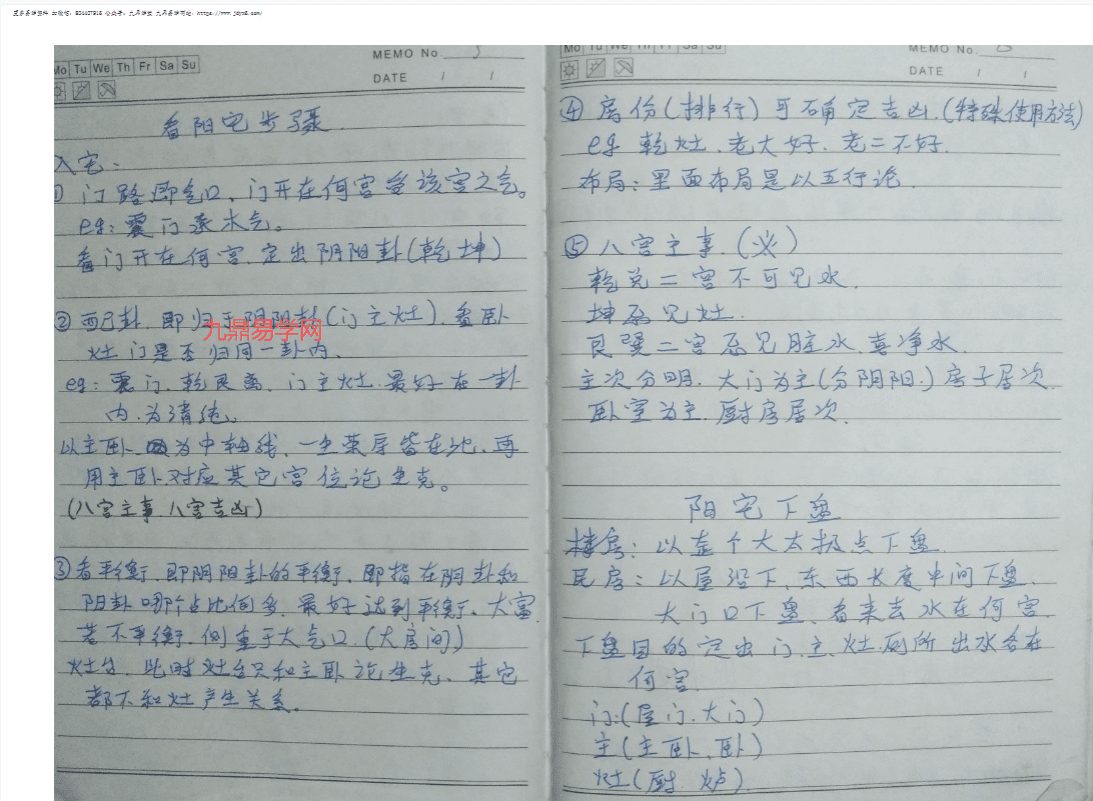 Mo Tu We Th Fr Sa Su
MEMO No.
DATE / /
看阳宅步骤
入宅:
① 门路即气口,门开在何宫受该宫之气。
eg: 震门承木气。
看门开在何宫,定出阴阳卦(乾坤)
② 配卦,即归于阴阳卦(门主灶),看卧
灶门是否归同一卦内、
eg: 震门、乾艮离、门主灶、最好在一卦
内、为清纯。
以主卧为中轴线、一生荣辱皆在此、再
用主卧对应其它宫位论生克。
(八宫主事 八宫吉凶)
③ 看平衡、即阴阳卦的平衡、即指在阴卦和
阳卦哪个占比例多、最好达到平衡、大富
若不平衡、侧重于大气口、(大房间)
灶台、此时灶台只和主卧论生克、其它
都不和灶产生关系。
九鼎易学网
Mo Tu We Th Fr Sa Su
MEMO No.
DATE / /
④ 房份(排行)可确定吉凶.(特殊使用方法)
eg 乾灶、老大好、老二不好.
布局:里面布局是以五行论.
⑤ 八宫主事(火)
乾兑二宫不可见水.
坤忌见灶.
艮巽二宫忌见脏水、喜净水.
主次分明、大门为主(分阴阳.)房子居次.
卧室为主.厨房居次.
阳宅下盘
楼房:以整个大太极点下盘.
民房:以屋沿下、东西长度中间下盘、
大门口下盘、看来去水在何宫
下盘目的定出门、主、灶、厕所出水各在
何宫.
门:(屋门、大门)
主(主卧、卧)
灶(厨、炉)